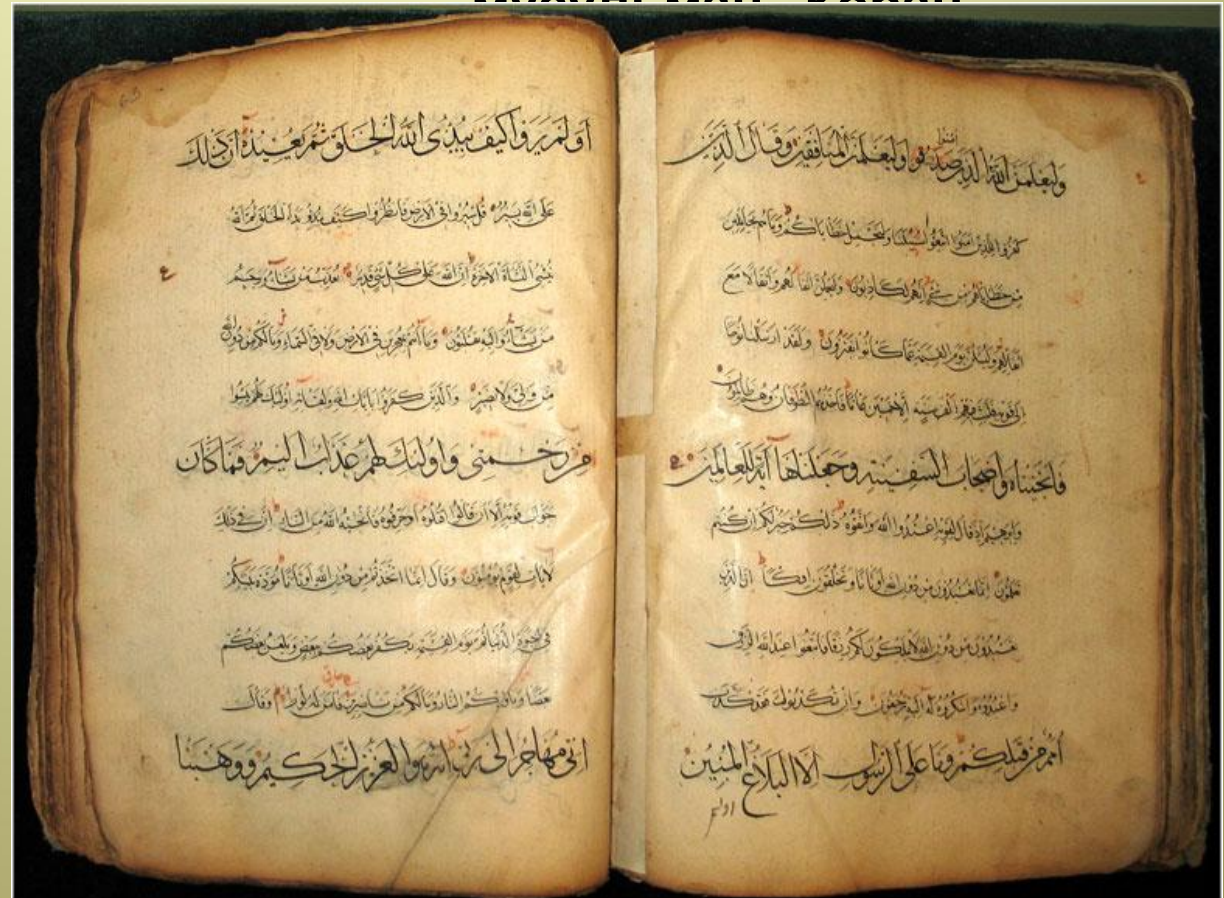 امنوا
وليعلمن الله الذين صدقوا وليعلمن المنافقين وقال الذين
كفروا للذين امنوا اتبعوا سبيلنا ولنحمل خطاياكم وما هم بحاملين
من خطاياهم من شئ انهم لكاذبون وليحملن اثقالهم واثقالا مع
اثقالهم وليسئلن يوم القيمة عما كانوا يفترون ولقد ارسلنا نوحا
الى قومه فلبث فيهم الف سنة الا خمسين عاما فاخذهم الطوفان وهم ظالمون
فانجيناه واصحاب السفينة وجعلناها آية للعالمين
وابرهيم اذ قال لقومه اعبدوا الله واتقوه ذلكم خير لكم ان كنتم
تعلمون انما تعبدون من دون الله اوثانا وتخلقون افكا ان الذين
تعبدون من دون الله لا يملكون لكم رزقا فابتغوا عند الله الرزق
واعبدوه واشكروا له اليه ترجعون وان تكذبوا فقد كذب
امم من قبلكم وما على الرسول الا البلاغ المبين
اولم
اولم يروا كيف يبدئ الله الخلق ثم يعيده ان ذلك
على الله يسير قل سيروا في الارض فانظروا كيف بدأ الخلق ثم الله
ينشئ النشأة الاخرة ان الله على كل شئ قدير يعذب من يشاء ويرحم
من يشاء واليه تقلبون وما انتم بمعجزين في الارض ولا في السماء وما لكم من دون الله
من ولي ولا نصير والذين كفروا بايات الله ولقائه اولئك يئسوا
من رحمتي واولئك لهم عذاب اليم فما كان
جواب قومه الا ان قالوا اقتلوه او حرقوه فانجيه الله من النار ان في ذلك
لايات لقوم يؤمنون وقال انما اتخذتم من دون الله اوثانا مودة بينكم
في الحيوة الدنيا ثم يوم القيمة يكفر بعضكم ببعض ويلعن بعضكم
بعضا ومأويكم النار وما لكم من ناصرين فامن له لوط وقال
اني مهاجر الى ربي انه هو العزيز الحكيم ووهبنا